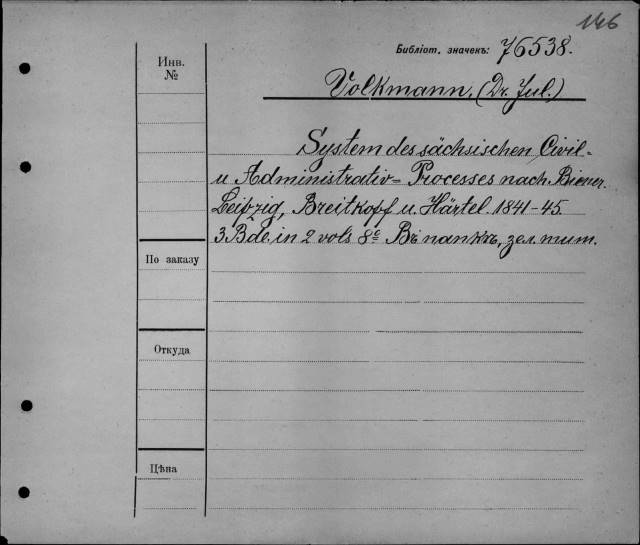 146
Библіот. значекъ: 76538.
Инв.
№
Volkmann, (Dr. Jul.)
System des sächsischen Civil-
u Administrativ= Processes nach Biener.
Leipzig, Breitkopf u. Härtel. 1841-45.
3 Bde. in 2 vols 8º Въ папкѣ, зел. тит.
По заказу
Откуда
Цѣна